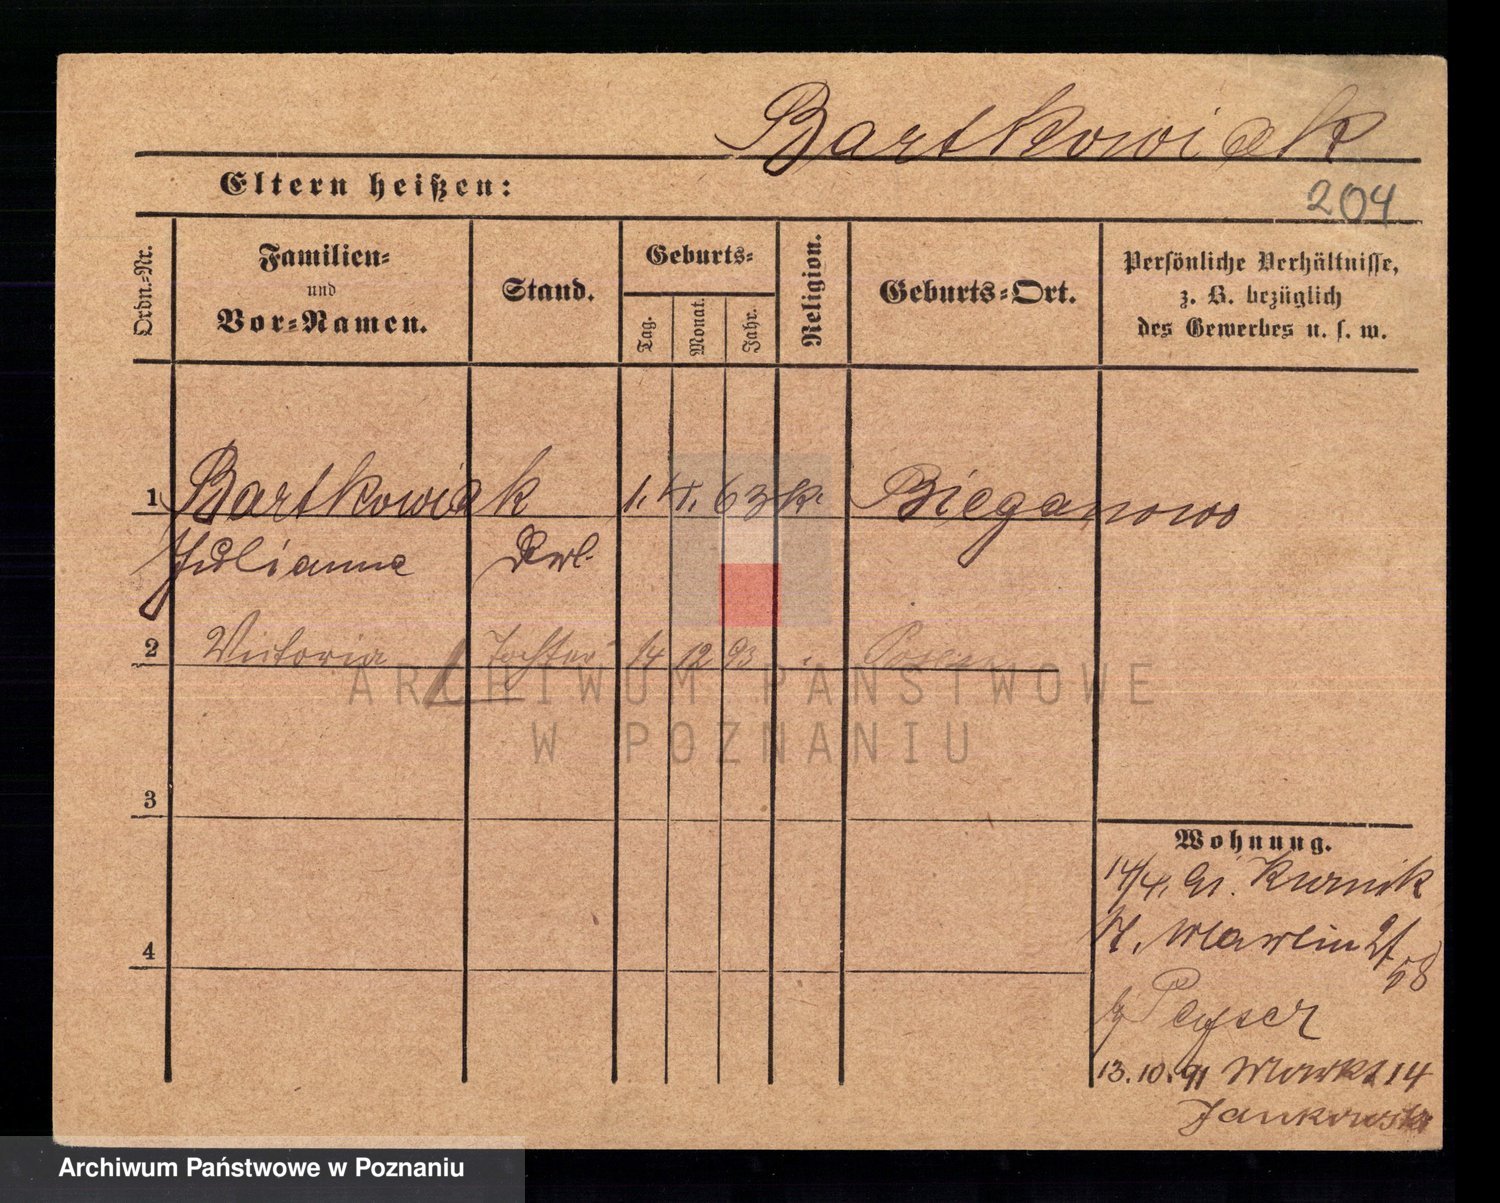 Bartkowiak
Eltern heißen:
204
Ordn.-Nr.
Familien-
und
Vor-Namen.
Stand.
Geburts-
Tag.
Monat.
Jahr.
Religion.
Geburts-Ort.
Persönliche Verhältnisse,
z. B. bezüglich
des Gewerbes u. s. w.
1 Bartkowiak 1. 63 k. Bieganowo
Julianna
2 Victoria Tochter 14 12 93 Posen
ARCHIWUM PAŃSTWOWE
W POZNANIU
3
Wohnung.
14/4. 91. Kurnik
4
Peyser
13.10.91 Markt 14
Jankowski
Archiwum Państwowe w Poznaniu